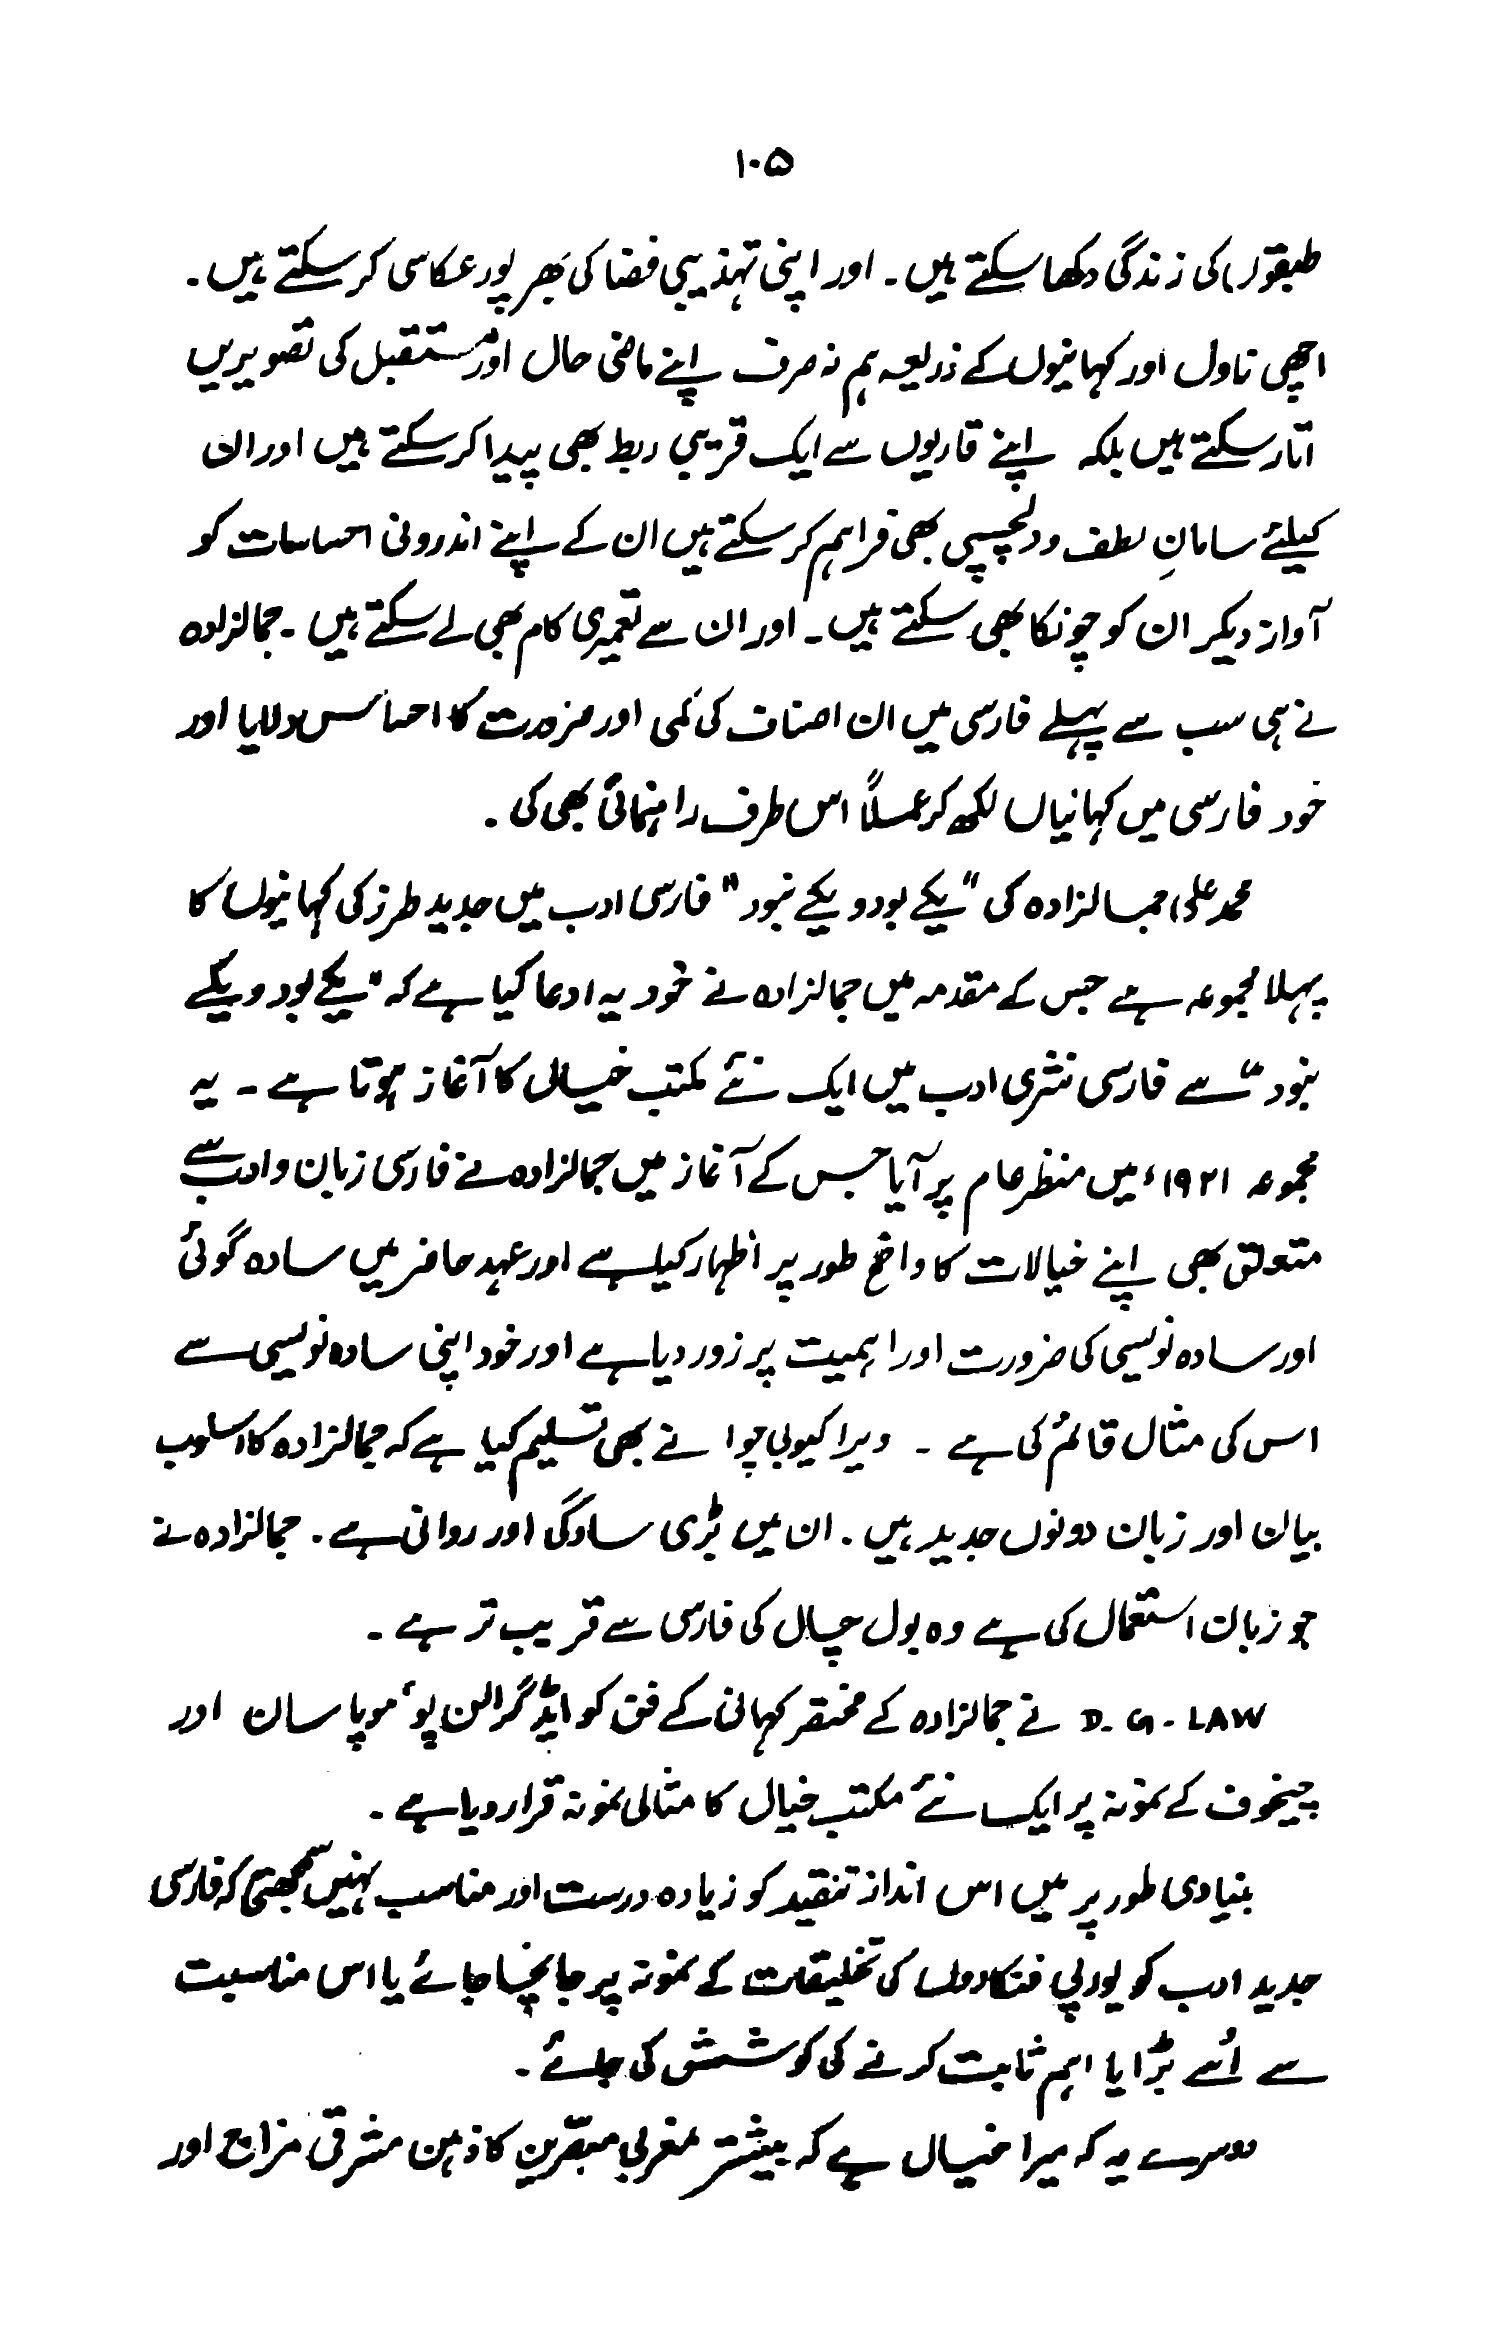 ۱۰۵
طبقوں کی زندگی دکھا سکتے ہیں۔ اور اپنی تہذیبی فضا کی بھرپور عکاسی کر سکتے ہیں۔
اچھی ناول اور کہانیوں کے ذریعہ ہم نہ صرف اپنے ماضی حال اور مستقبل کی تصویریں
اتار سکتے ہیں بلکہ اپنے قاریوں سے ایک قریبی ربط بھی پیدا کر سکتے ہیں اور ان
کیلئے سامانِ لطف و دلچسپی بھی فراہم کر سکتے ہیں ان کے اپنے اندرونی احساسات کو
آواز دیکر ان کو چونکا بھی سکتے ہیں۔ اور ان سے تعمیری کام بھی لے سکتے ہیں۔ جمالزادہ
نے ہی سب سے پہلے فارسی میں ان اصناف کی کمی اور ضرورت کا احساس دلایا اور
خود فارسی میں کہانیاں لکھ کر عملاً اس طرف راہنمائی بھی کی۔
محمد علی جمالزادہ کی "یکے بود و یکے نبود" فارسی ادب میں جدید طرز کی کہانیوں کا
پہلا مجموعہ ہے جس کے مقدمہ میں جمالزادہ نے خود یہ ادعا کیا ہے کہ "یکے بود و یکے
نبود" سے فارسی نثری ادب میں ایک نئے مکتب خیال کا آغاز ہوتا ہے۔ یہ
مجموعہ ۱۹۲۱ء میں منظر عام پر آیا جس کے آغاز میں جمالزادہ نے فارسی زبان و ادب سے
متعلق بھی اپنے خیالات کا واضح طور پر اظہار کیا ہے اور عہد حاضر میں سادہ گوئی
اور سادہ نویسی کی ضرورت اور اہمیت پر زور دیا ہے اور خود اپنی سادہ نویسی سے
اس کی مثال قائم کی ہے۔ ویرا کیوبی چوا نے بھی تسلیم کیا ہے کہ جمالزادہ کا اسلوب
بیان اور زبان دونوں جدید ہیں۔ ان میں بڑی سادگی اور روانی ہے۔ جمالزادہ نے
جو زبان استعمال کی ہے وہ بول چال کی فارسی سے قریب تر ہے۔
D. G. LAW نے جمالزادہ کے مختصر کہانی کے فن کو ایڈگر الن پو، موپاسان اور
چیخوف کے نمونہ پر ایک نئے مکتب خیال کا مثالی نمونہ قرار دیا ہے۔
بنیادی طور پر میں اس انداز تنقید کو زیادہ درست اور مناسب نہیں سمجھتی کہ فارسی
جدید ادب کو یورپی فنکاروں کی تخلیقات کے نمونہ پر جانچا جائے یا اس مناسبت
سے اُسے بڑا یا اہم ثابت کرنے کی کوشش کی جائے۔
دوسرے یہ کہ میرا خیال ہے کہ بیشتر مغربی مبصرین کا ذہن مشرقی مزاج اور